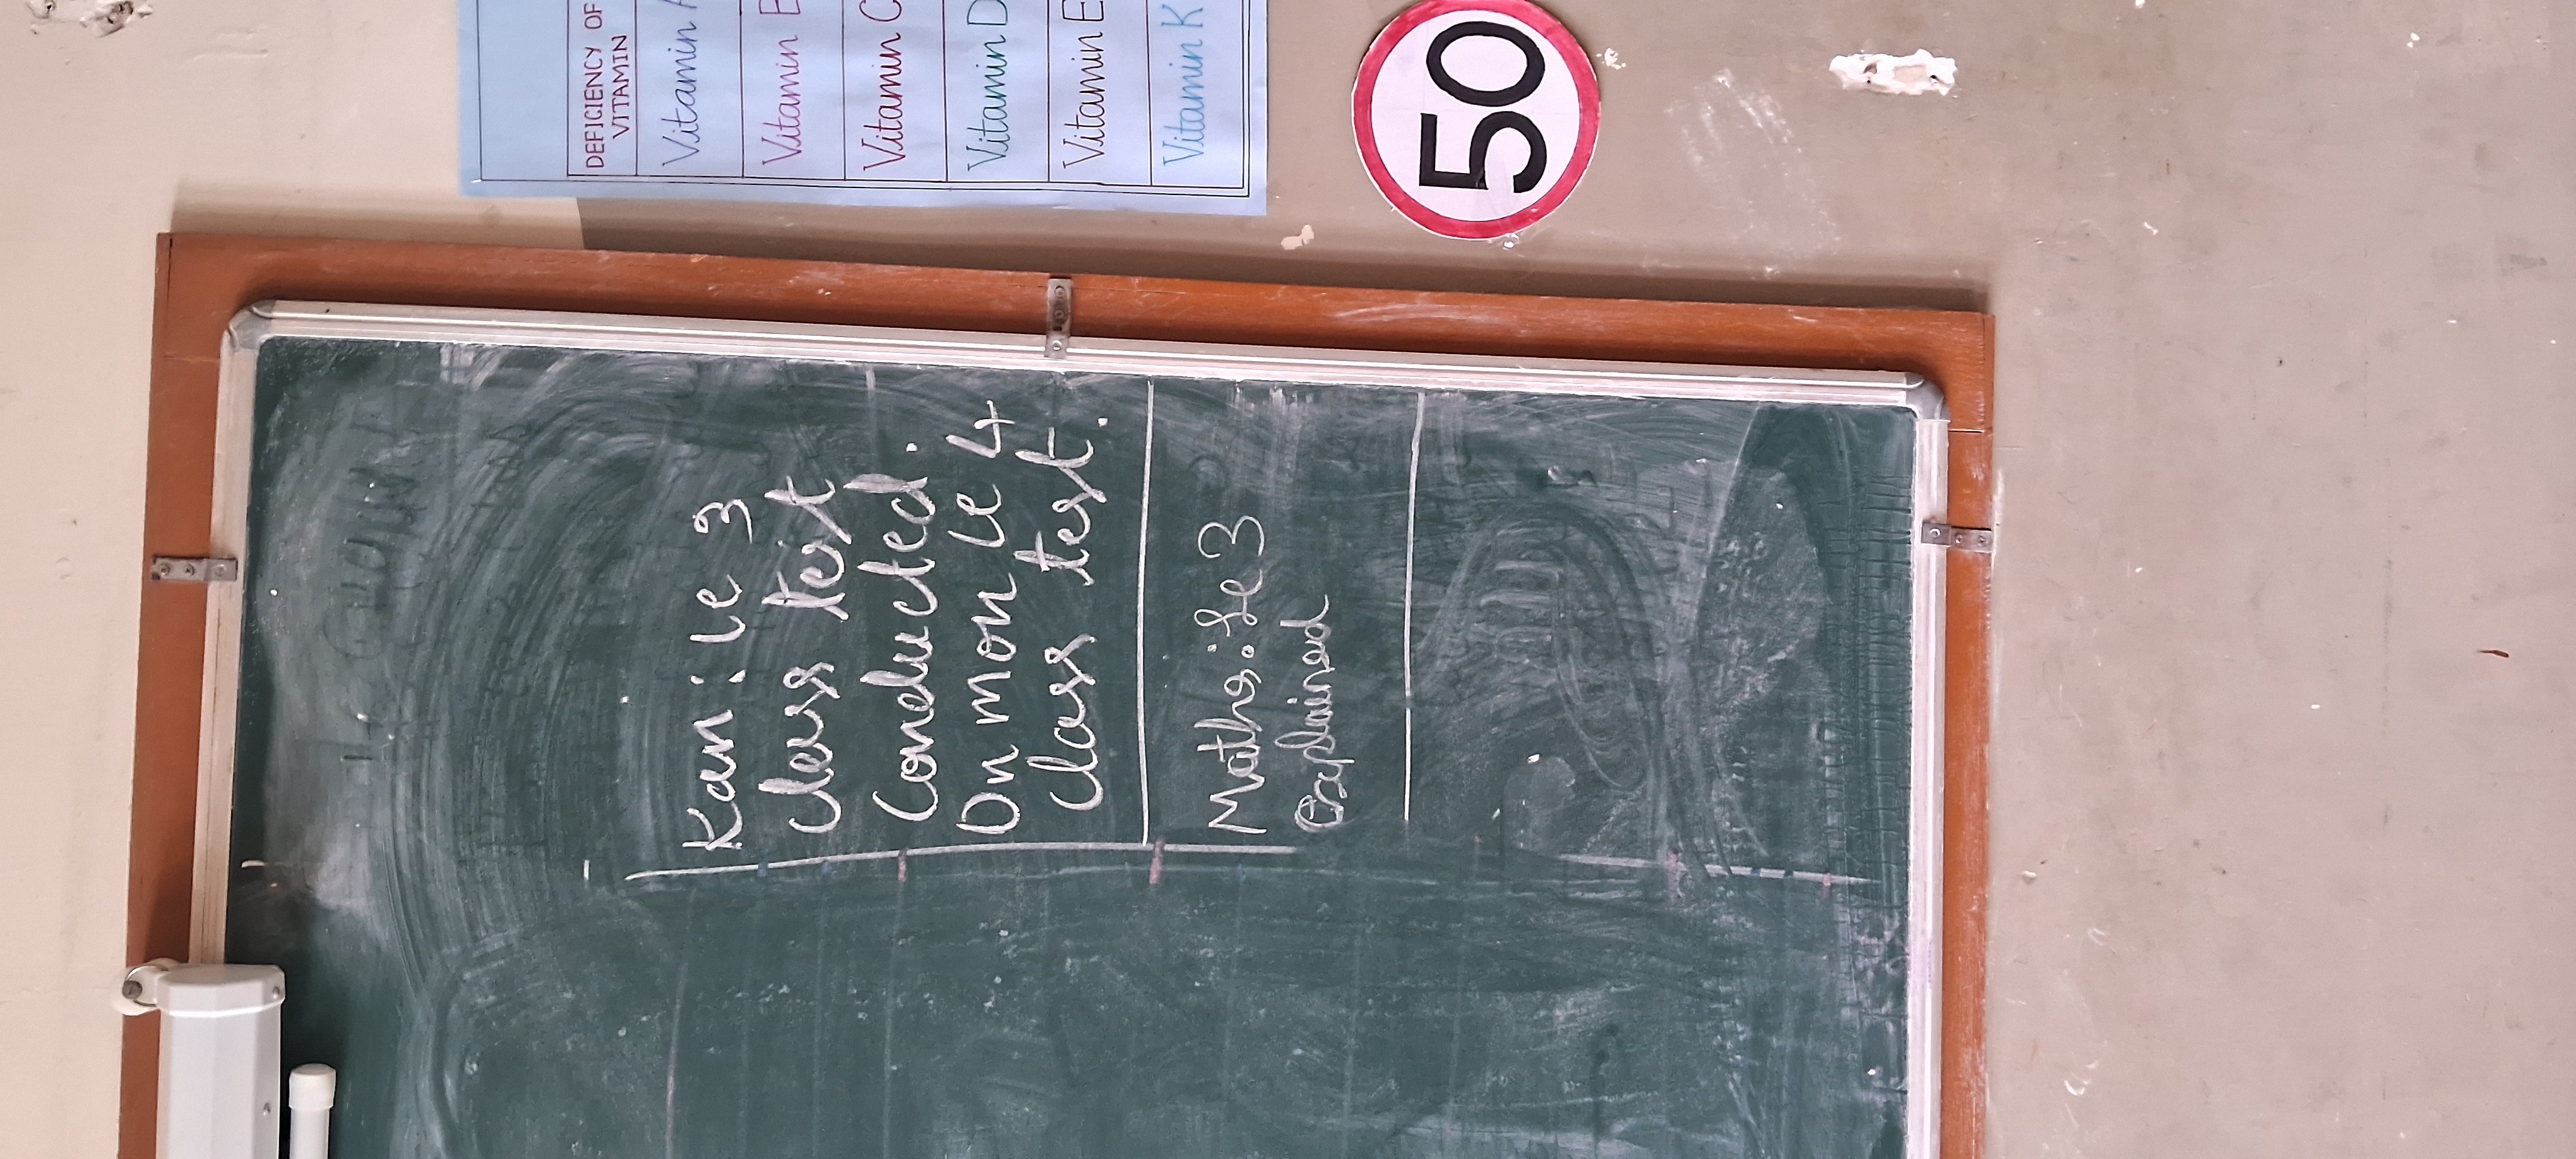 DEFICIENCY OF
VITAMIN
Vitamin A
Vitamin E
Vitamin C
Vitamin D
Vitamin E
Vitamin K
50
Kan: Le 3
class test
Conducted.
On mon Le 4
class test.
Maths: Le 3
Explained